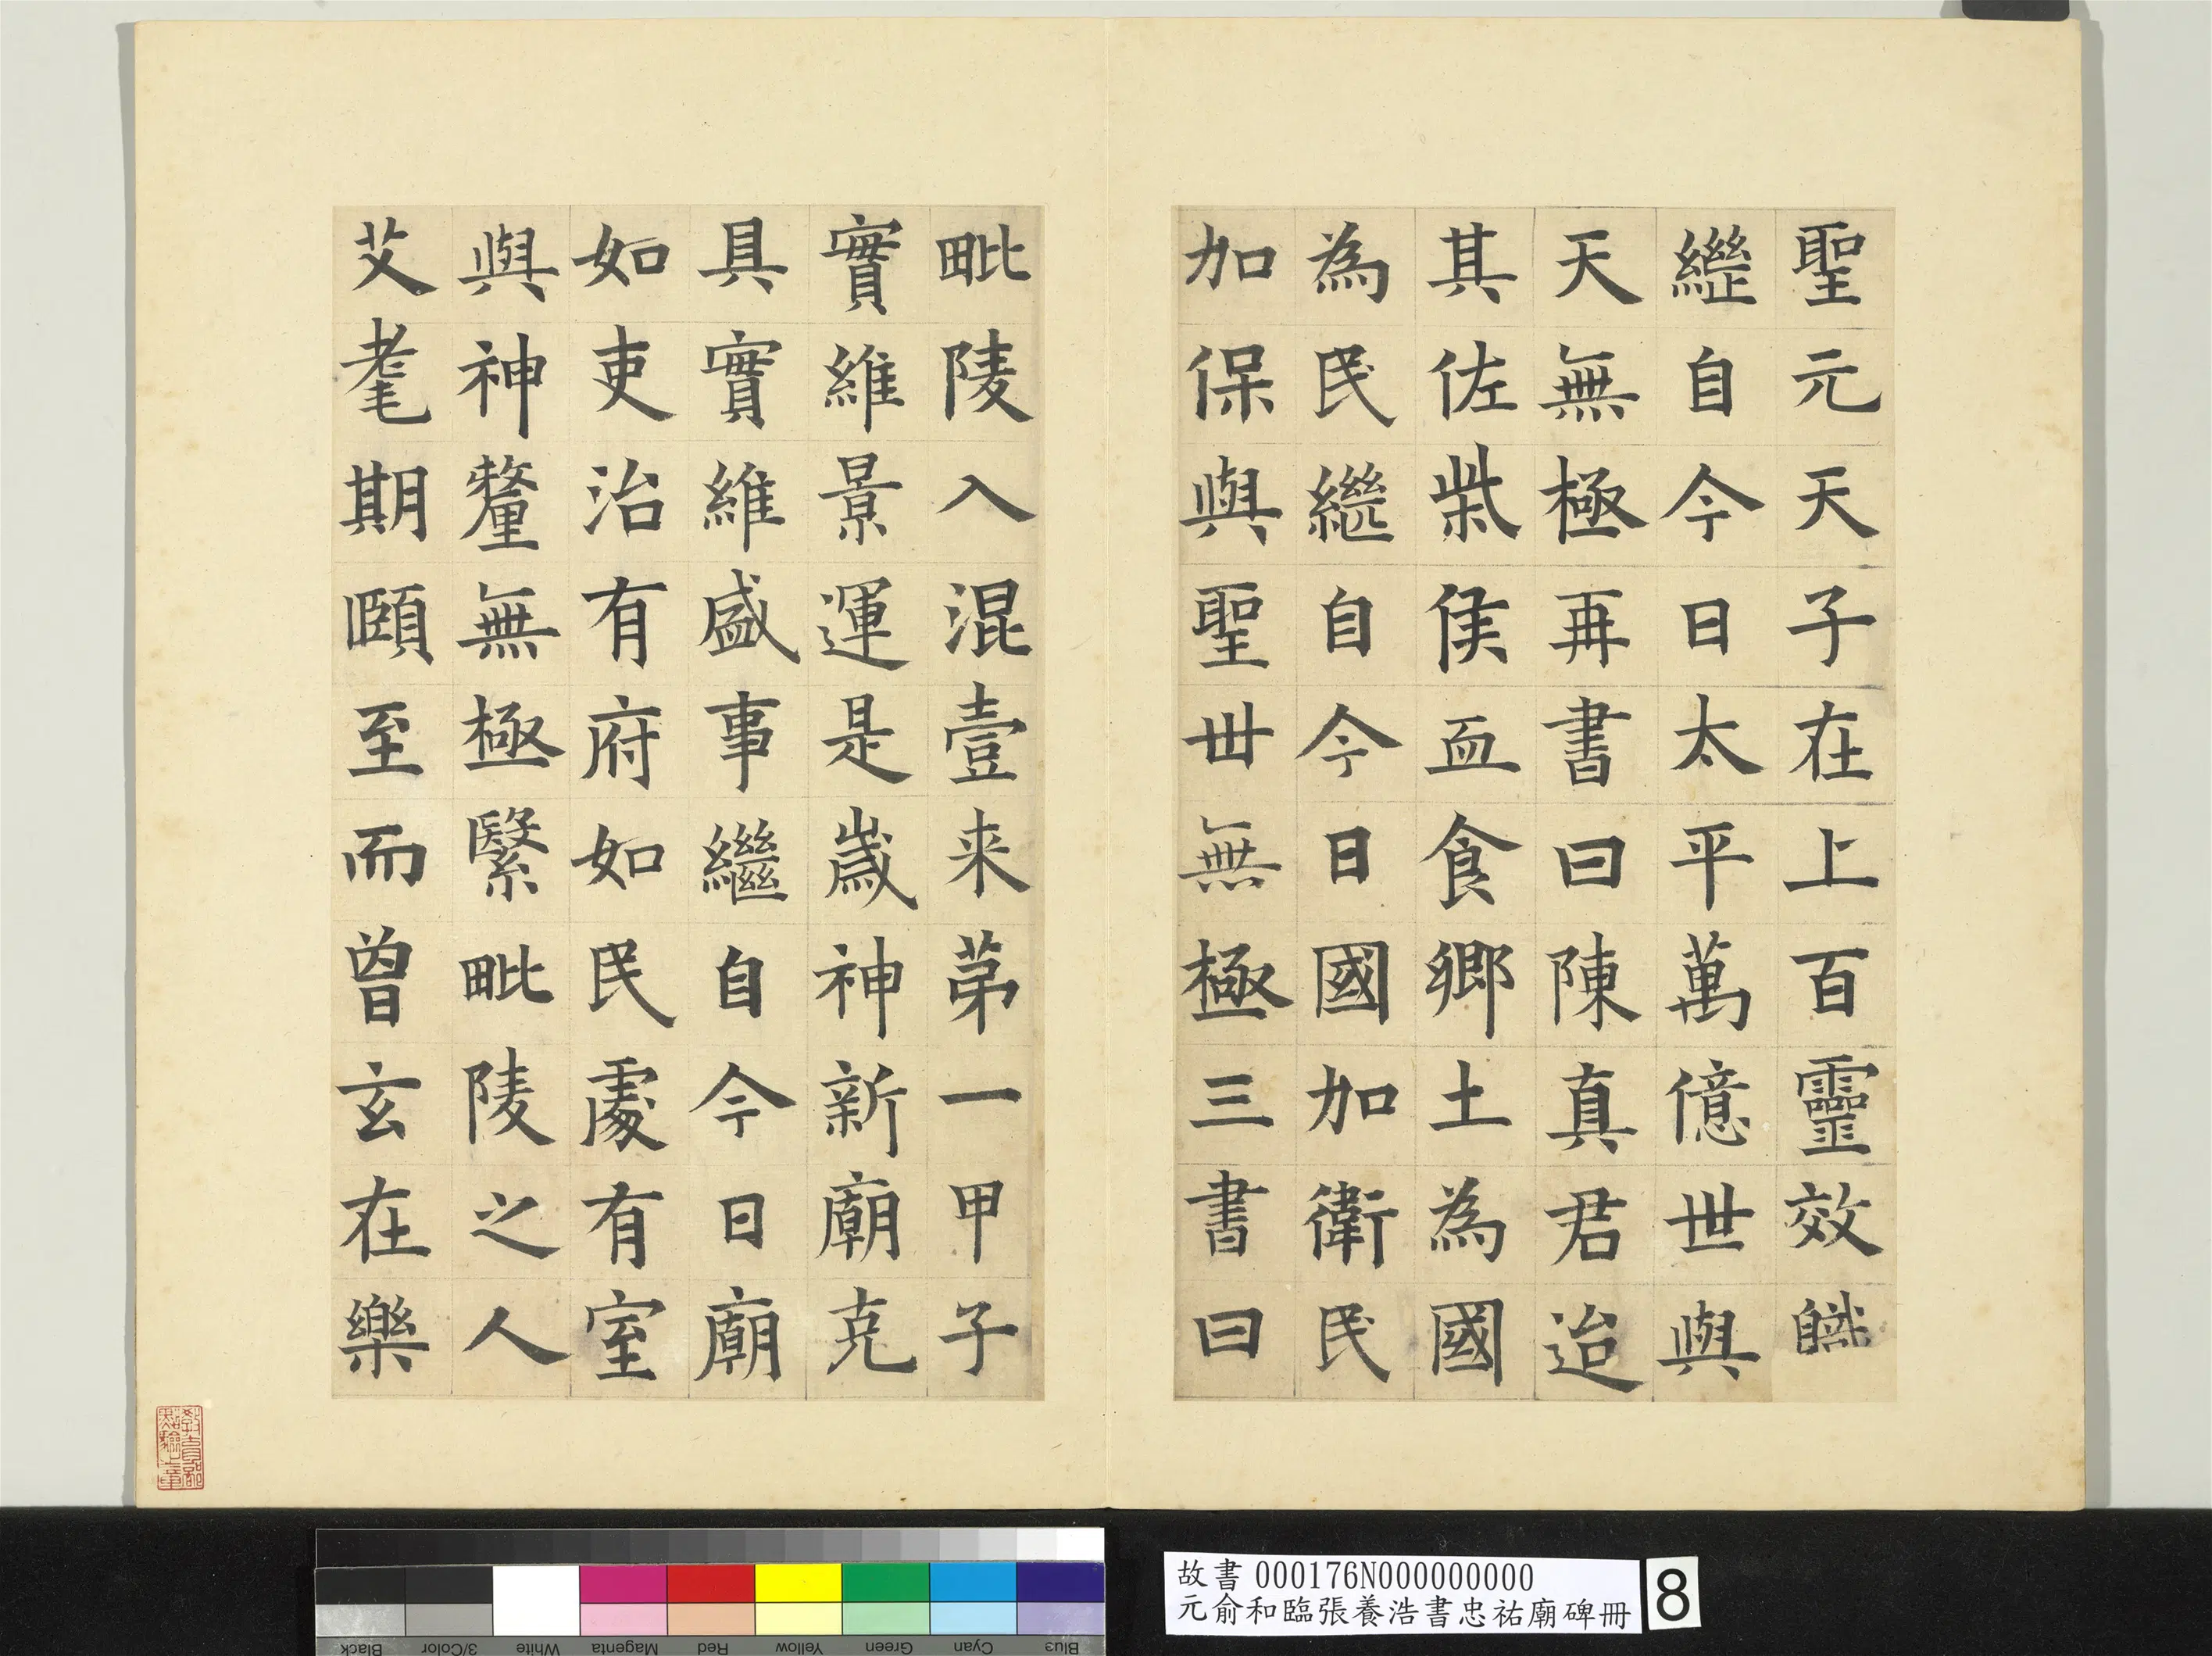 聖元天子在上百靈效職
繼自今日太平萬億世與
天無極再書曰陳真君迨
其佐柴侯血食鄉土為國
為民繼自今日國加衛民
加保與聖世無極三書曰
毗陵入混壹来苐一甲子
實維景運是歲神新廟克
具實維盛事繼自今日廟
如吏治有府如民處有室
與神釐無極繄毗陵之人
艾耄期頤至而曾玄在樂
故書000176N000000000
元俞和臨張養浩書忠祐廟碑冊
8
Black
3/Color
White
Magenta
Red
Yellow
Green
Cyan
Blue